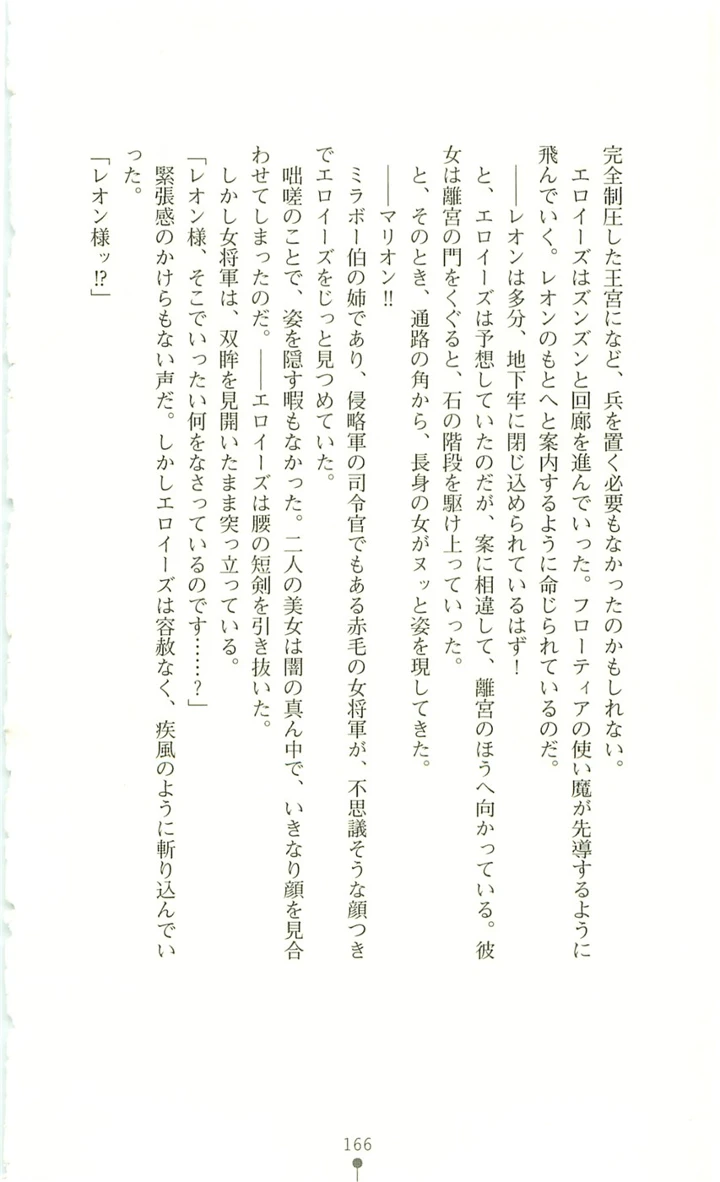 完全制圧した王宮になど、兵を置く必要もなかったのかもしれない。
エロイーズはズンズンと回廊を進んでいった。フローティアの使い魔が先導するように
飛んでいく。レオンのもとへと案内するように命じられているのだ。
――レオンは多分、地下牢に閉じ込められているはず！
と、エロイーズは予想していたのだが、案に相違して、離宮のほうへ向かっている。彼
女は離宮の門をくぐると、石の階段を駆け上っていった。
と、そのとき、通路の角から、長身の女がヌッと姿を現してきた。
――マリオン!!
ミラボー伯の姉であり、侵略軍の司令官でもある赤毛の女将軍が、不思議そうな顔つき
でエロイーズをじっと見つめていた。
咄嗟のことで、姿を隠す暇もなかった。二人の美女は闇の真ん中で、いきなり顔を見合
わせてしまったのだ。――エロイーズは腰の短剣を引き抜いた。
しかし女将軍は、双眸を見開いたまま突っ立っている。
「レオン様、そこでいったい何をなさっているのです……？」
緊張感のかけらもない声だ。しかしエロイーズは容赦なく、疾風のように斬り込んでい
った。
「レオン様ッ!?」
166